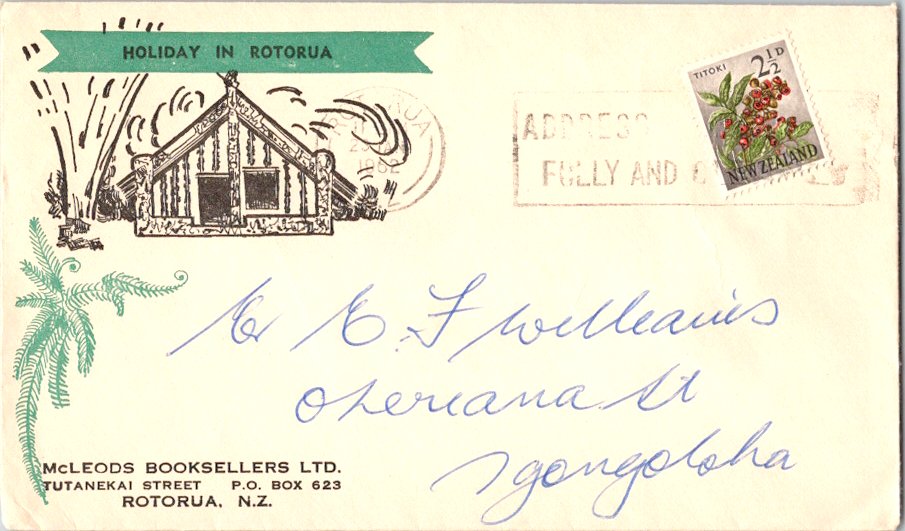 HOLIDAY IN ROTORUA
ROTORUA
1962
ADDRESS
FULLY AND
TITOKI
2½D
NEW ZEALAND
E F Williams
St
McLEODS BOOKSELLERS LTD.
TUTANEKAI STREET P.O. BOX 623
ROTORUA, N.Z.